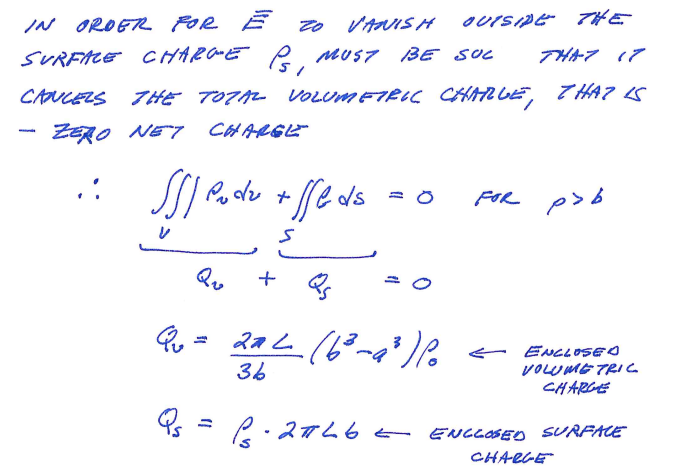 IN ORDER FOR E̅ TO VANISH OUTSIDE THE
SURFACE CHARGE ρₛ, MUST BE SUC THAT IT
CANCELS THE TOTAL VOLUMETRIC CHARGE, THAT IS
– ZERO NET CHARGE
∴ ∭ᵥ ρᵥ dv + ∬ₛ ρₛ ds = 0 FOR ρ>b
Qᵥ + Qₛ = 0
Qᵥ = 2πL/3b (b³-a³)ρ₀ ← ENCLOSED VOLUMETRIC CHARGE
Qₛ = ρₛ · 2πLb ← ENCLOSED SURFACE CHARGE